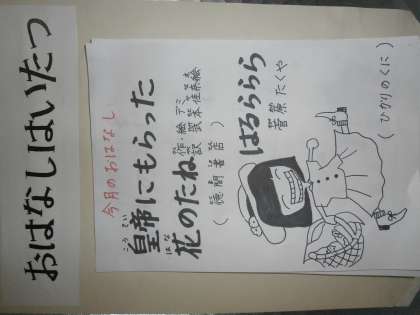 おはなしはいたつ
今月のおはなし
こうてい
皇帝にもらった
はな
花のたね
作・絵 デミ
訳 武本佳奈絵
(徳間書店)
はるららら
菅原たくや
(ひかりのくに)